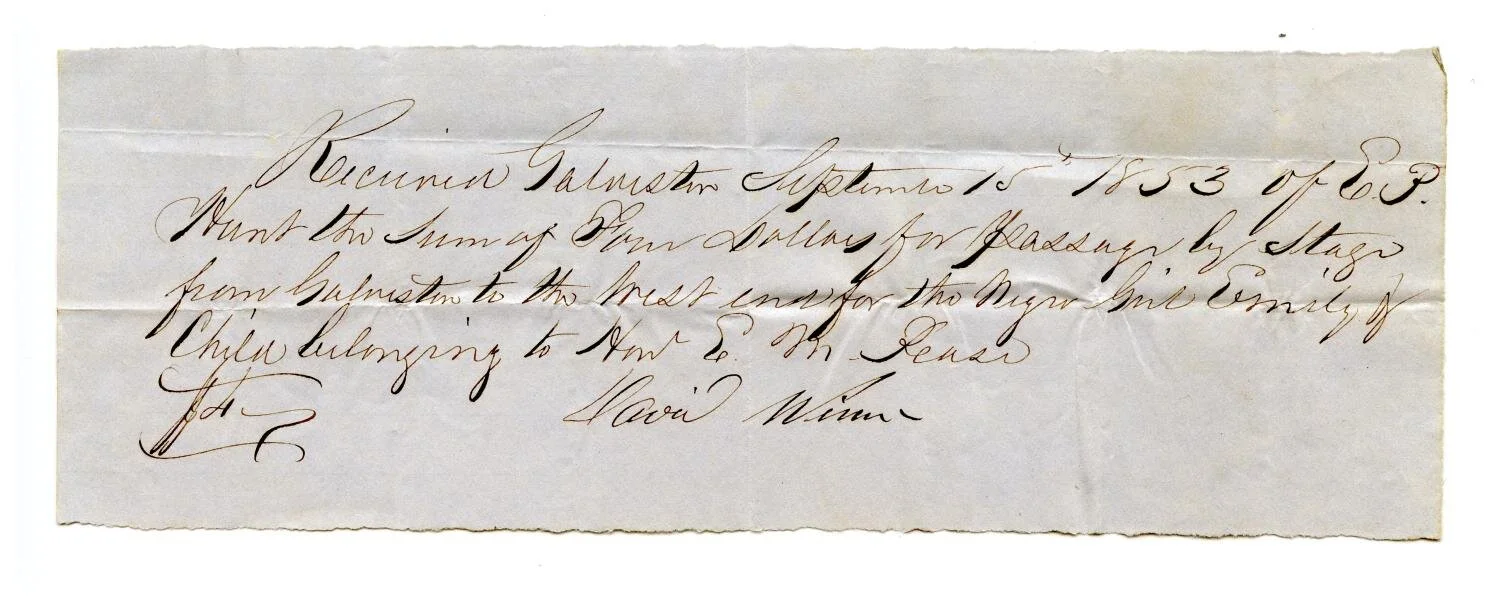 Received Galveston September 15" 1853 of E. P.
Hunt the sum of Four Dollars for Passage by Stage
from Galveston to the West end for the Negro Girl Emily &
Child belonging to Hon E. M. Pease
$4 David Winn